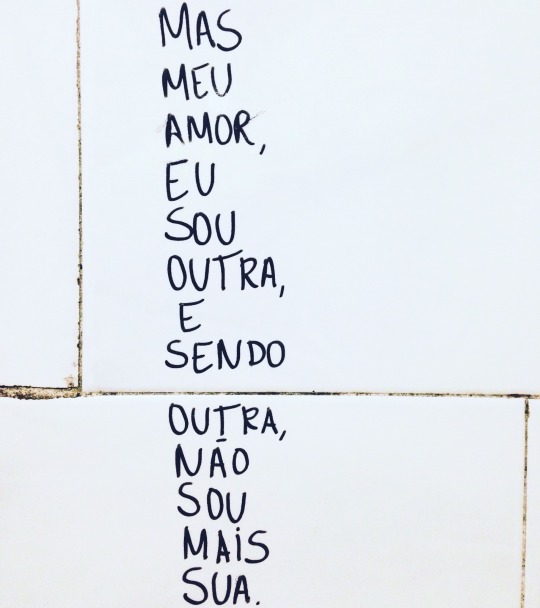 MAS
MEU
AMOR,
EU
SOU
OUTRA,
E
SENDO
OUTRA,
NÃO
SOU
MAIS
SUA.